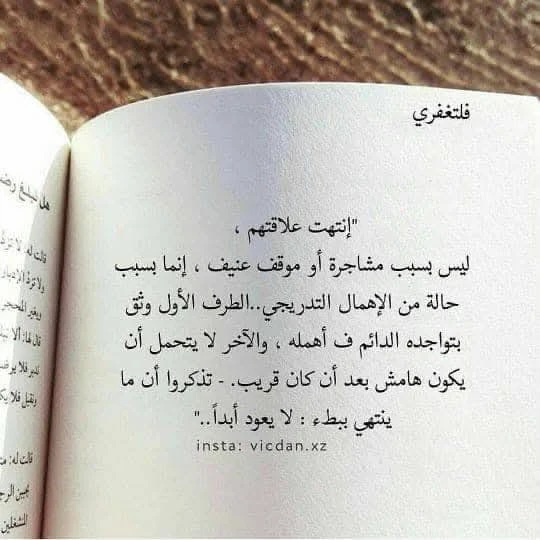 فلتغفري
"إنتهت علاقتهم ،
ليس بسبب مشاجرة أو موقف عنيف ، إنما بسبب
حالة من الإهمال التدريجي..الطرف الأول وثق
بتواجده الدائم ف أهمله ، والآخر لا يتحمل أن
يكون هامش بعد أن كان قريب. - تذكروا أن ما
ينتهي ببطء : لا يعود أبداً.."
insta: vicdan.xz
قالت له:
قال لها: ألا
قالت له: